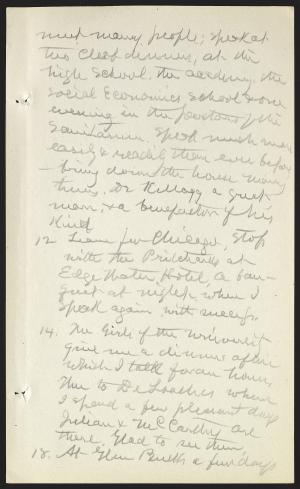 meet many people; speak at
two Club dinners, at the
high School, the academy, the
Social Economics School & one
evening in the parlors of the
Sanitarium. Speak much more
easily & readily than ever before
— bring down the house many
times. Dr Kellogg a great
man, & a benefactor of his
kind.
12 Leave for Chicago, Stop
with the Pritchards at
Edge Water Hotel, a ban-
quet at night, when I
speak again with success.
14. The Girls of the university
give me a dinner after
which I talk for an hour,
then to DeLoach's where
I spend a few pleasant days
Julian & McCarthy are
there. Glad to see them
18. At Glen Buell's a few days